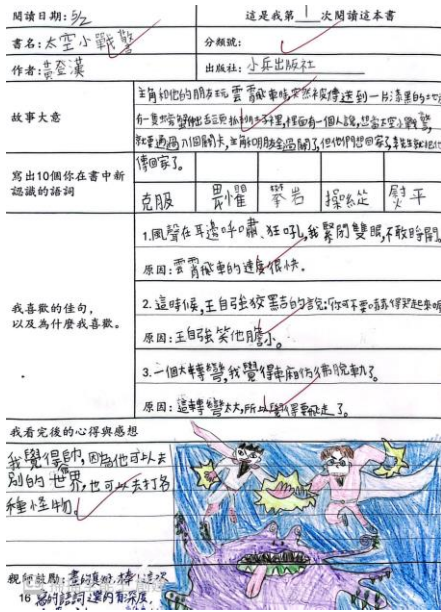 閱讀日期: 5/2
這是我第 1 次閱讀這本書
書名: 太空小戰警
分類號:
作者: 黃登漢
出版社: 小兵出版社
故事大意
主角和他的朋友玩雲霄飛車時,突然被傳送到一片漆黑的
裡面有一個人說,想當太空小戰警,
就要通過八個關卡,主角和朋友全過關了,但他們想回家了,
傳回家了。
寫出10個你在書中新
認識的語詞
克服 畏懼 攀岩 操縱 熨平
我喜歡的佳句,
以及為什麼我喜歡。
1.風聲在耳邊呼嘯、狂吼,我緊閉雙眼,不敢睜開。
原因:雲霄飛車的速度很快。
2.這時候,王自強狡黠的說:你可不要嚇得哭起來喔
原因:王自強笑他膽小。
3.一個大轉彎,我覺得車廂彷彿脫軌了。
原因:這轉彎太大,所以覺得要飛走了。
我看完後的心得與感想
我覺得很帥,因為他可以去
別的世界,也可以去打各
種怪物。
親師鼓勵: 畫的真好,棒!這次
16 寫的語詞還